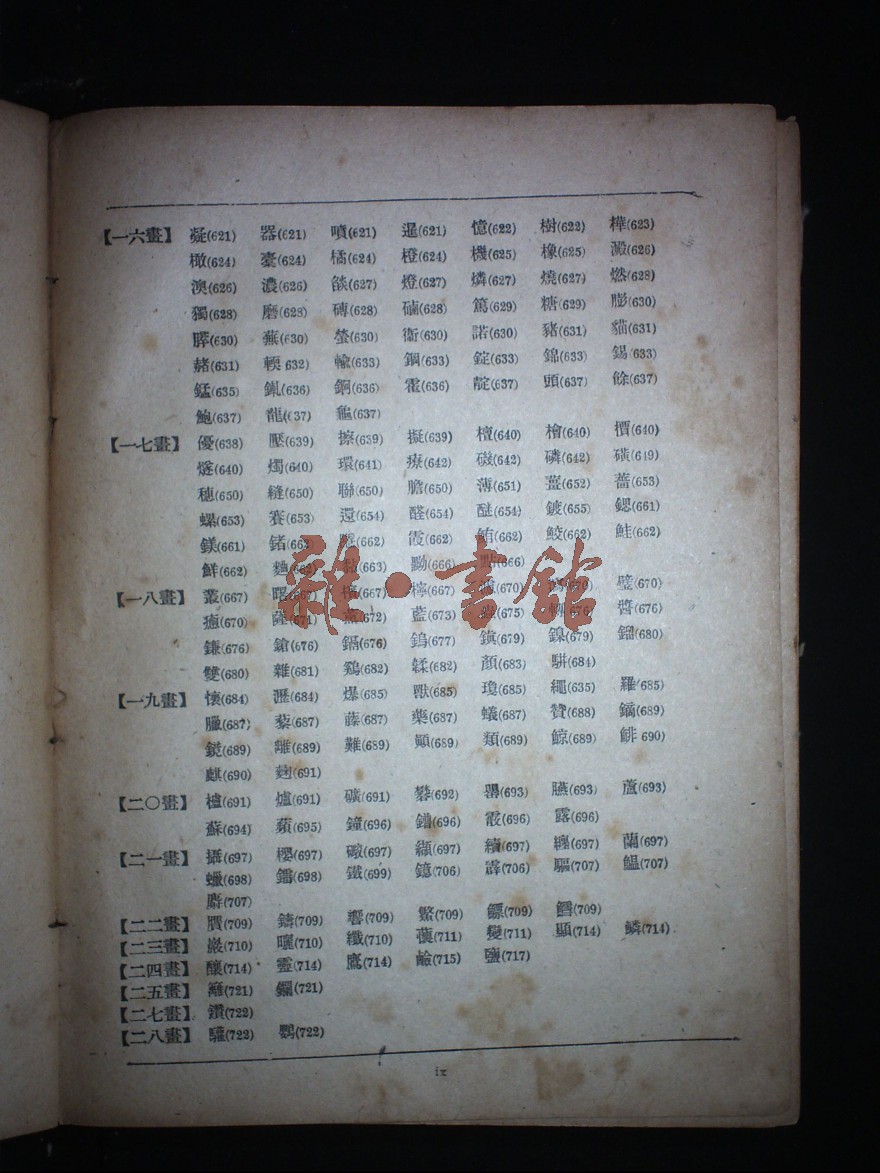 【一六畫】 凝(621) 器(621) 噴(621) 暹(621) 憶(622) 樹(622) 樺(623)
橄(624) 橐(624) 橘(624) 橙(624) 機(625) 橡(625) 澱(626)
澳(626) 濃(626) 燄(627) 燈(627) 燐(627) 燒(627) 燃(628)
獨(628) 磨(628) 磚(628) 碙(628) 篤(629) 糖(629) 膨(630)
膵(630) 蕪(630) 螢(630) 衞(630) 諾(630) 豬(631) 貓(631)
赭(631) 輭(632) 輸(633) 鋼(633) 錠(633) 錦(633) 錫(633)
錳(635) 錭(636) 霍(636) 靛(637) 頭(637) 餘(637)
鮑(637) 龍(637) 龜(637)
【一七畫】 優(638) 壓(639) 擦(639) 擬(639) 檀(640) 檜(640) 檟(640)
燧(640) 燭(640) 環(641) 療(642) 磁(642) 磷(642) 磺(649)
穗(650) 縫(650) 聯(650) 膽(650) 薄(651) 薑(652) 薔(653)
螺(653) 賽(653) 還(654) 醛(654) 醚(654) 鍍(655) 鍶(661)
鎂(661) 鍺(662) (662) 霞(662) 鮪(662) 鮫(662) 鮭(662)
鮮(662) (663) 黝(666) 點(666)
【一八畫】 叢(667) 曙(667) (667) 檸(667) (670) (670) 璧(670)
癒(670) 薩(671) (672) 藍(673) (675) (676) 醬(676)
鎌(676) 鎗(676) 鎘(676) 鎢(677) 鎮(679) 鎳(679) 鎦(680)
雙(680) 雜(681) 鷄(682) 鞣(682) 顏(683) 騈(684)
【一九畫】 懷(684) 瀝(684) 爆(685) 獸(685) 瓊(685) 繩(635) 羅(685)
臘(687) 藜(687) 藤(687) 藥(687) 蟻(687) 贊(688) 鏑(689)
鏡(689) 離(689) 難(689) 顚(689) 類(689) 鯨(689) 鯡(690)
麒(690) (691)
【二〇畫】 櫨(691) 爐(691) 礦(691) 礬(692) 罌(693) 臙(693) 蘆(693)
蘇(694) 蘋(695) 鐘(696) 鐠(696) 霰(696) 露(696)
【二一畫】 攝(697) 櫻(697) (697) 纈(697) 續(697) 纏(697) 蘭(697)
蠟(698) 鐳(698) 鐵(699) 鐿(706) 霹(706) 驅(707) 鰮(707)
麝(707)
【二二畫】 贋(709) 鑄(709) 響(709) 鱉(709) 鰾(709) 鱈(709)
【二三畫】 巖(710) 曬(710) 纖(710) (711) 變(711) 顯(714) 鱗(714)
【二四畫】 釀(714) 靈(714) 鷹(714) 鹼(715) 鹽(717)
【二五畫】 籬(721) 鑭(721)
【二七畫】 鑽(722)
【二八畫】 驩(722) 鸚(722)
ix
雜·書館